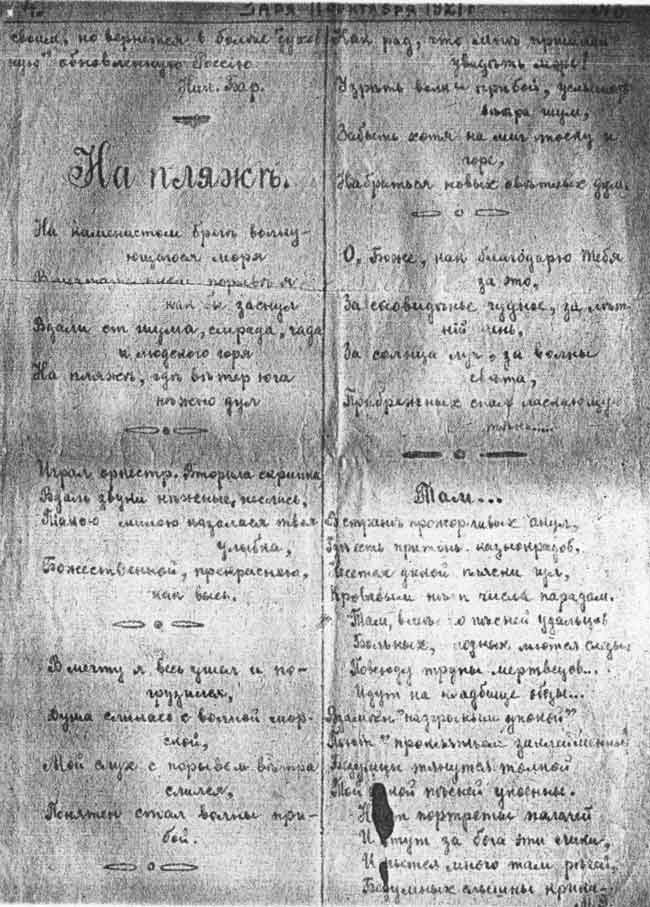 ЗАРЯ 11 ОКТЯБРЯ 1921 г.
своим, но вернется в более
ную" обновленную Россию
Ник. Бар.
На пляжѣ.
На каменистом брегѣ волну-
ющагося моря
В мечтательном порывѣ я
как бы заснул
Вдали от шума, смрада, чада
и людского горя
На пляжѣ, гдѣ вѣтер юга
нѣжно дул
Играл оркестр. Вторила скрипка
Вдаль звуки нѣжные, неслись,
Такою милою казалася твоя
улыбка,
Божественной, прекрасною,
как высь.
В мечту я весь ушел и по-
грузился,
Душа слилась с волной мор-
ской,
Мой слух с порывом вѣтра
слился,
Понятен стал волны при-
бой.
Как рад, что мог
увидѣть море!
Узрѣть волн и прибой, услышать
вѣтра шум,
Забыть хотя на миг тоску и
горе,
Набраться новых дум.
О, Боже, как благодарю Тебя
за это,
За чудное, за лѣт-
ній день,
За солнца луч, за волны
свѣта,
Прибрежных скал ласкающую
тѣнь....
Там...
В странѣ прожорливых акул,
Гдѣ есть притон казнокрадов,
дикой пѣсни гул,
Кровавым нѣт числа парадам.
Там, вмѣстѣ с пѣсней удальцов
Больных, голодных льются слезы
Повсюду трупы мертвецов...
Идут на кладбище обозы...
"проклятьем заклейменный"
тянутся толпой
пѣсней упоенны.
портреты палачей
И чтут за бога эти лики,
И льется много там рѣчей,
Безумных слышны крики..